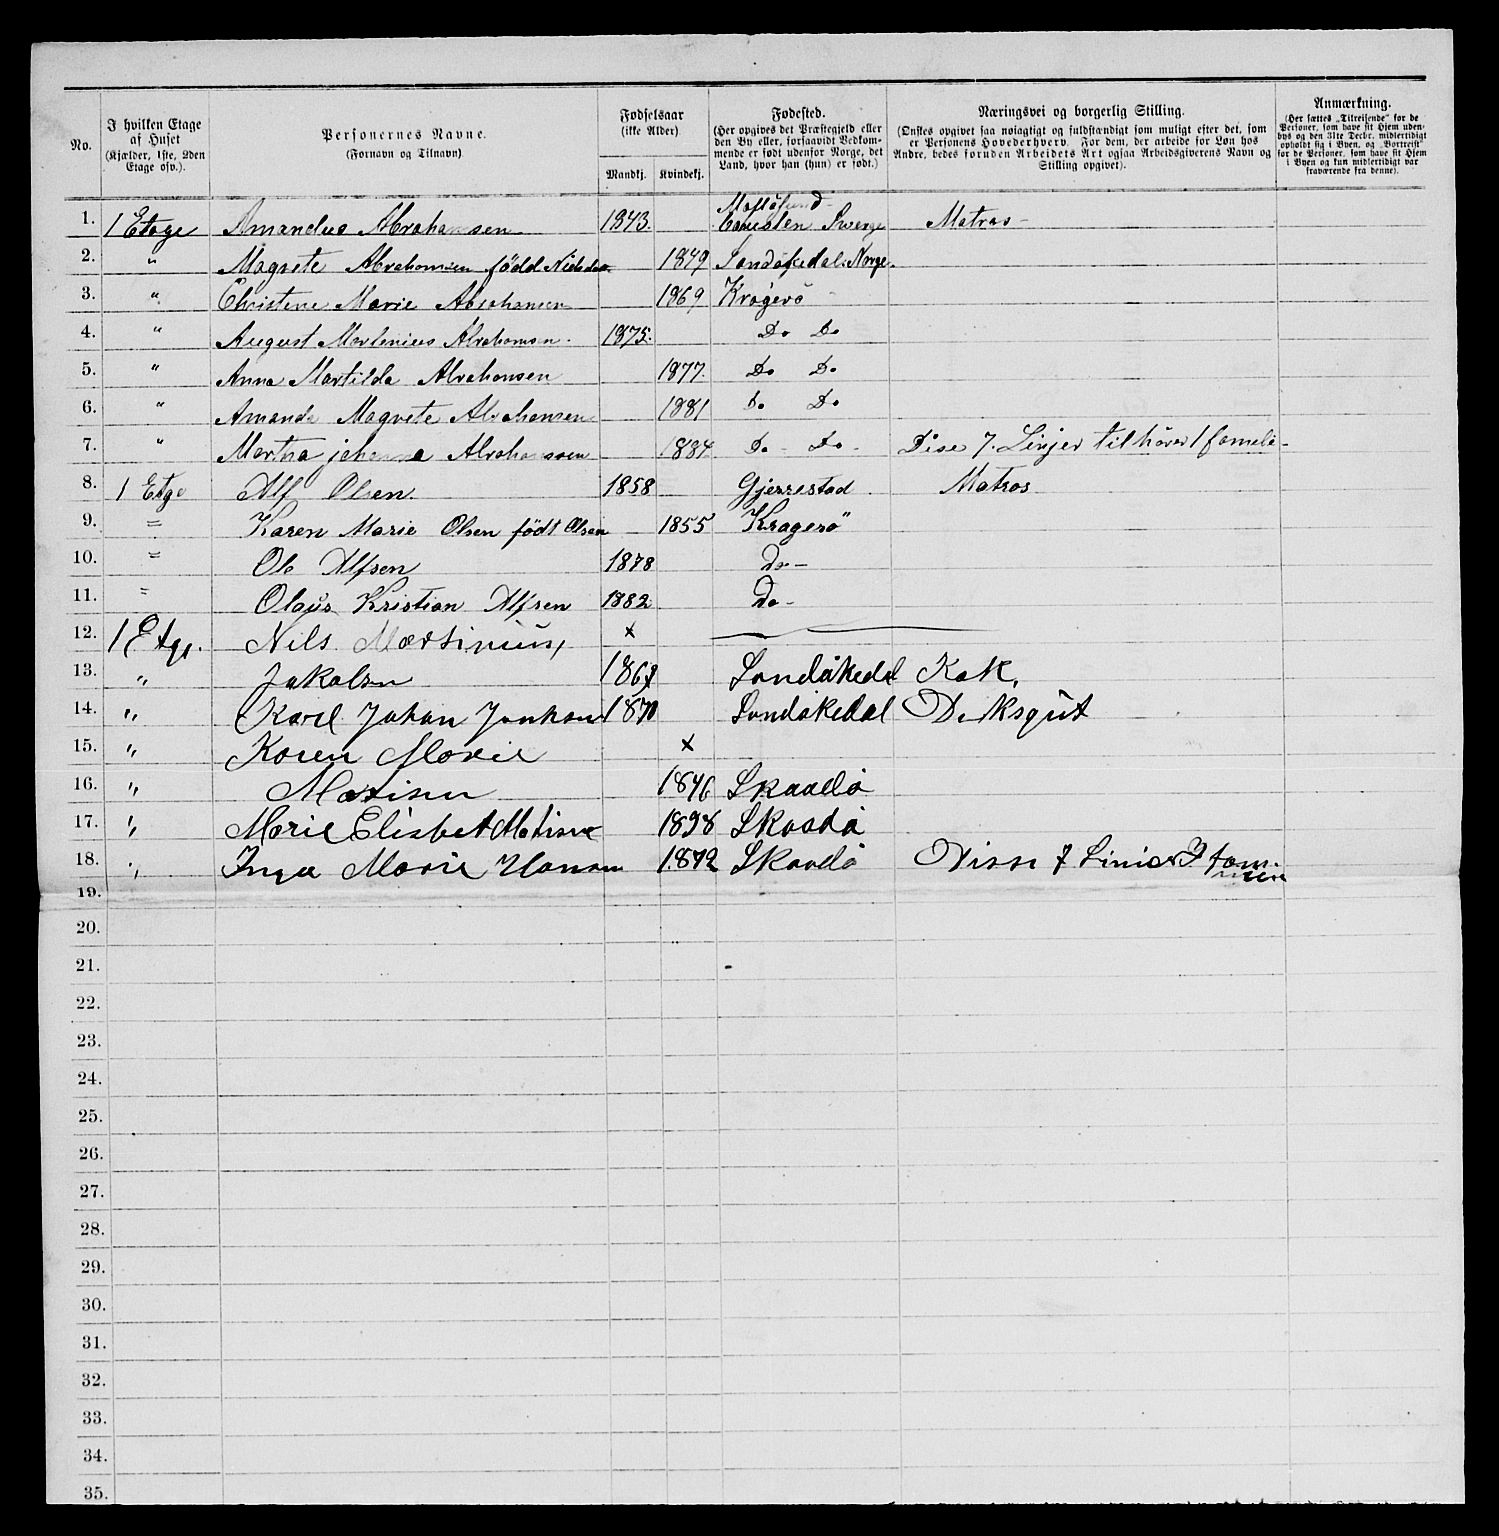 No.
I hvilken Etage af Huset (Kjælder, 1ste, 2den Etage osv.).
Personernes Navne. (Fornavn og Tilnavn)
Fødselsaar (ikke Alder)
Mandkj. Kvindekj.
Fødested. (Her opgives det Præstegjeld eller den By eller, forsaavidt Vedkommende er født udenfor Norge, det Land, hvor han (hun) er født.)
Næringsvei og borgerlig Stilling. (Ønskes opgivet saa nøiagtigt og fuldstændigt som muligt efter det, som er Personens Hovederhverv. For dem, der arbeide for Løn hos Andre, bedes foruden Arbeidets Art ogsaa Arbeidsgiverens Navn og Stilling opgivet).
Anmærkning. (Her sættes „Tilreisende“ for de Personer, som have sit Hjem udenbys og den 31te Decbr. midlertidigt opholdt sig i Byen, og „Bortreist“ for de Personer, som have sit Hjem i Byen og kun midlertidigt var fraværende fra denne).
1. 1 Etage Amandus Abrahamsen 1843. Swerge Matros
2. " Magrete Abrahamsen född 1849 Sandøkedal. Norge.
3. " Christene Marie Abrahamsen 1869 Krogerö
4. " August Martenius Abrahamsen. 1875. Do Do
5. " Anna Martilda Abrahamsen 1877. Do Do
6. " Amanda Magrete Abrahamsen 1881 Do Do
7. " Martha johanna Abrahamsen 1884 Do - Do - Disse 7. Linjer tilhörer 1 famele -
8. 1 Etge Alf Olsen. 1858 Gjerrestad Matros
9. = Karen Marie Olsen født Olsen 1855 Kragerø
10. = Ole Alfsen 1878 Do -
11. = Olaus Kristian Alfsen 1882 Do -
12. 1 Etge. Nils Martinius, x
13. " Jakobsen 1867 Sondåkedal Kok,
14. " Karl Johan 1870 Sondåkedal Deksgut
15. " Karen Marie x
16. " Matisen 1846 Skaadø
17. " Marie Elisbet Matisen 1898 Skaadø
18. " Inga Marie Hansen 1872 Skaadø Disse 7 Linier
19.
20.
21.
22.
23.
24.
25.
26.
27.
28.
29.
30.
31.
32.
33.
34.
35.